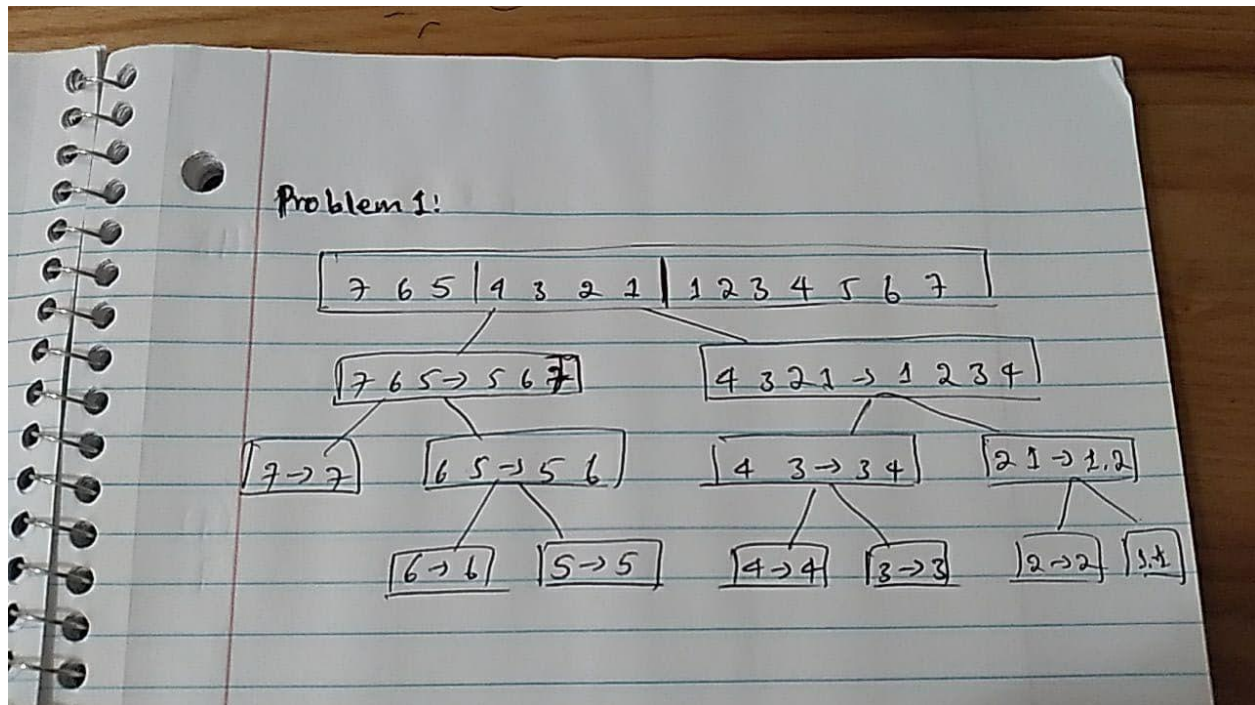 Problem 1:
7 6 5 | 4 3 2 1 | 1 2 3 4 5 6 7
7 6 5 → 5 6 7
4 3 2 1 → 1 2 3 4
7 → 7
6 5 → 5 6
4 3 → 3 4
2 1 → 1.2
6 → 6
5 → 5
4 → 4
3 → 3
2 → 2